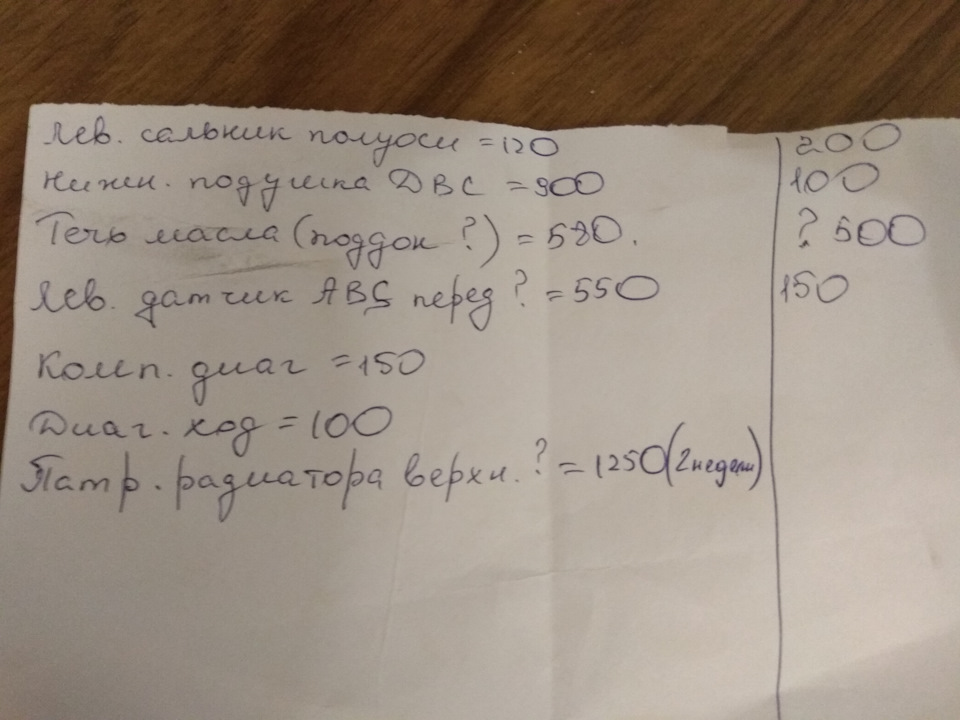 Лев. сальник полуоси = 120 200
Нижн. подушка ДВС = 900 100
Течь масла (поддон ?) = 580. ? 500
Лев. датчик ABS перед ? = 550 150
Комп. диаг = 150
Диаг. ход = 100
Патр. радиатора верхн. ? = 1250 (2 недели)